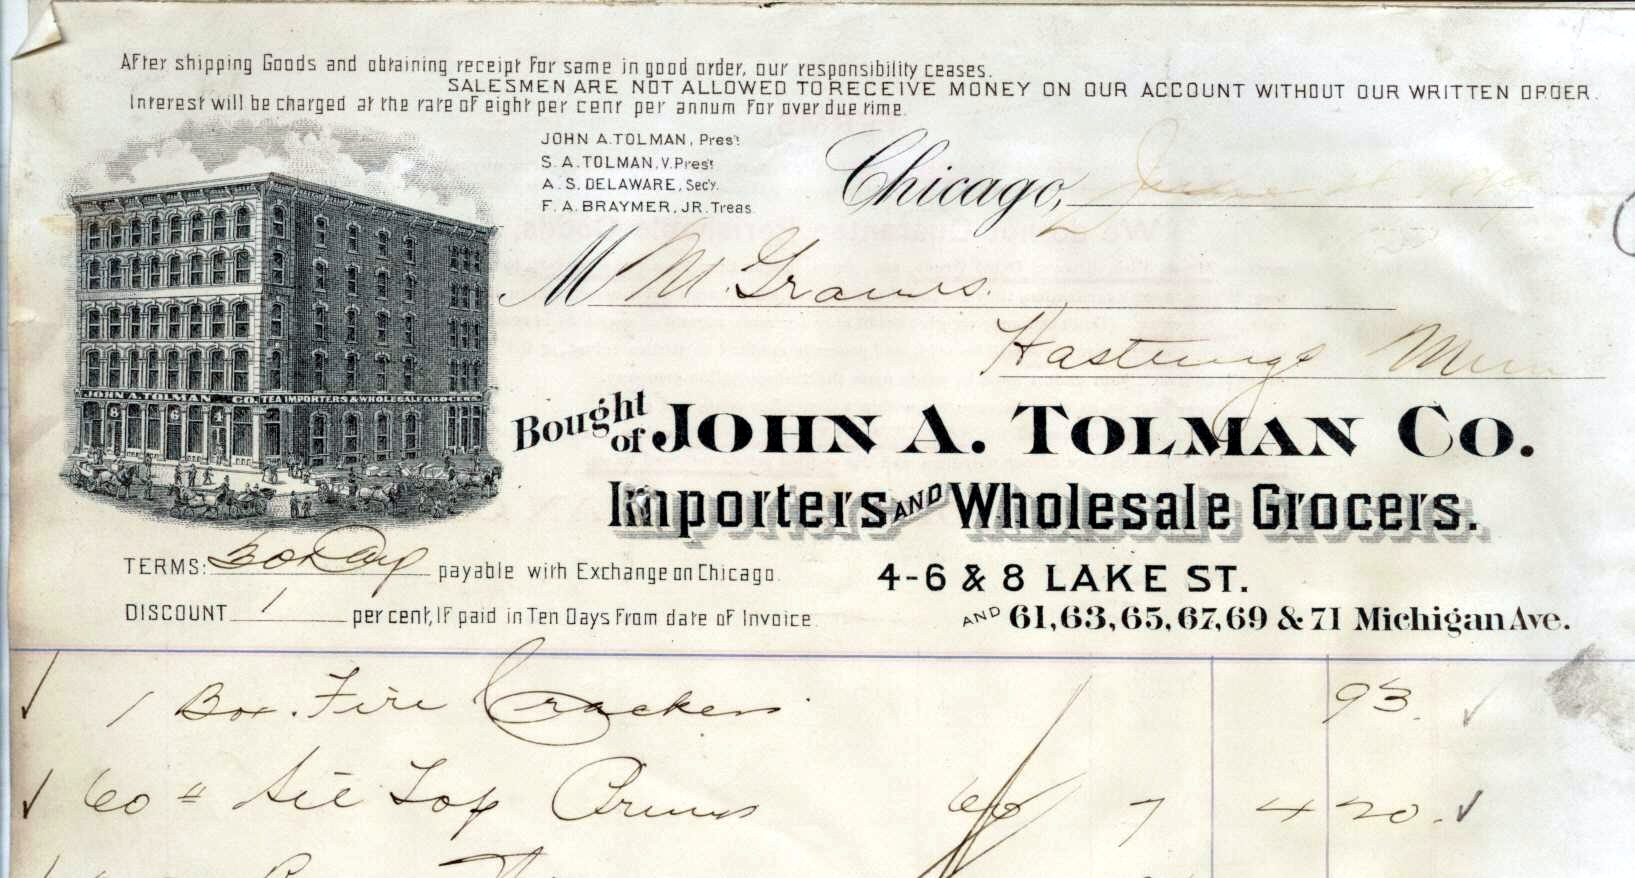 After shipping Goods and obtaining receipt for same in good order, our responsibility ceases.
SALESMEN ARE NOT ALLOWED TO RECEIVE MONEY ON OUR ACCOUNT WITHOUT OUR WRITTEN ORDER.
Interest will be charged at the rate of eight per cent per annum for over due time.
JOHN A. TOLMAN, Pres't
S. A. TOLMAN, V. Pres't
A. S. DELAWARE, Sec'y.
F. A. BRAYMER, JR. Treas.
Chicago, June
M M. Graus.
Hastings Minn
JOHN A. TOLMAN CO. TEA IMPORTERS & WHOLESALE GROCERS.
8 6 4
Bought of JOHN A. TOLMAN CO.
Importers AND Wholesale Grocers.
4-6 & 8 LAKE ST.
AND 61, 63, 65, 67, 69 & 71 Michigan Ave.
TERMS: 60 Day payable with Exchange on Chicago.
DISCOUNT 1 per cent, If paid in Ten Days From date of Invoice.
1 Box. Fire Crackers 93.
60 # Prunes 7 4 20.